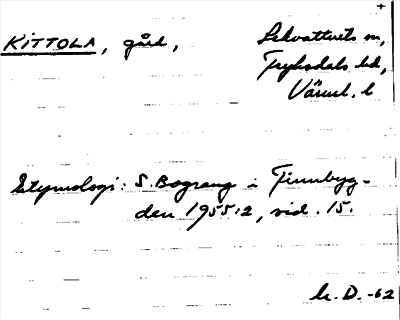 KITTOLA, gård, Lekvattnets sn,
Fryksdals hd,
Värml. l
Etymologi: S. Bograng i Finnbyg-
den 1955:2, sid. 15.
D. -62